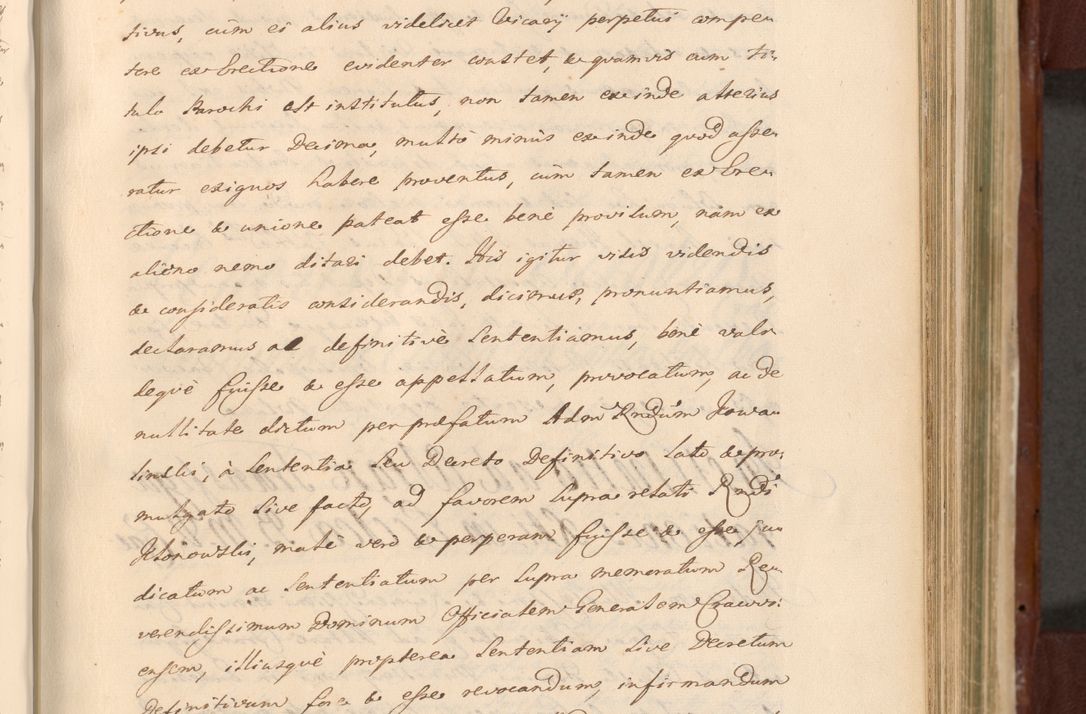 tivus, cùm ei alius videlicet Vicarij perpetui compe,
tere ex Erectione evidenter constet, & quamvis cum Ti,
tulo Parochi est institutus, non tamen exinde alterius
ipsi debetur Decima, multò minùs exinde quod asse,
ratur exiguos habere proventus, cùm tamen ex Ere,
ctione & unione pateat esse benè provisum, nàm ex
alieno nemo ditari debet. His igitur visis videndis
& consideratis considerandis, dicimus, pronuntiamus,
declaramus ac definitivè Sententiamus, benè vali,
dequè fuisse & esse appellatum, provocatum, ac de
nullitate dictum per præfatum Adm Rndum Nowa,
sinski, à Sententia Seu Decreto Definitivo lato & pro,
mulgato sive facto, ad favorem supra relati Rndi
male verò & perperam fuisse & esse ju,
dicatum ac Sententiatum per supra memoratum Re,
verendissimum Dominum Officialem Generalem Cracovi,
ensem, illiusquè propterea Sententiam sive Decretum
Definitivum fore & esse revocandum, infirmandum